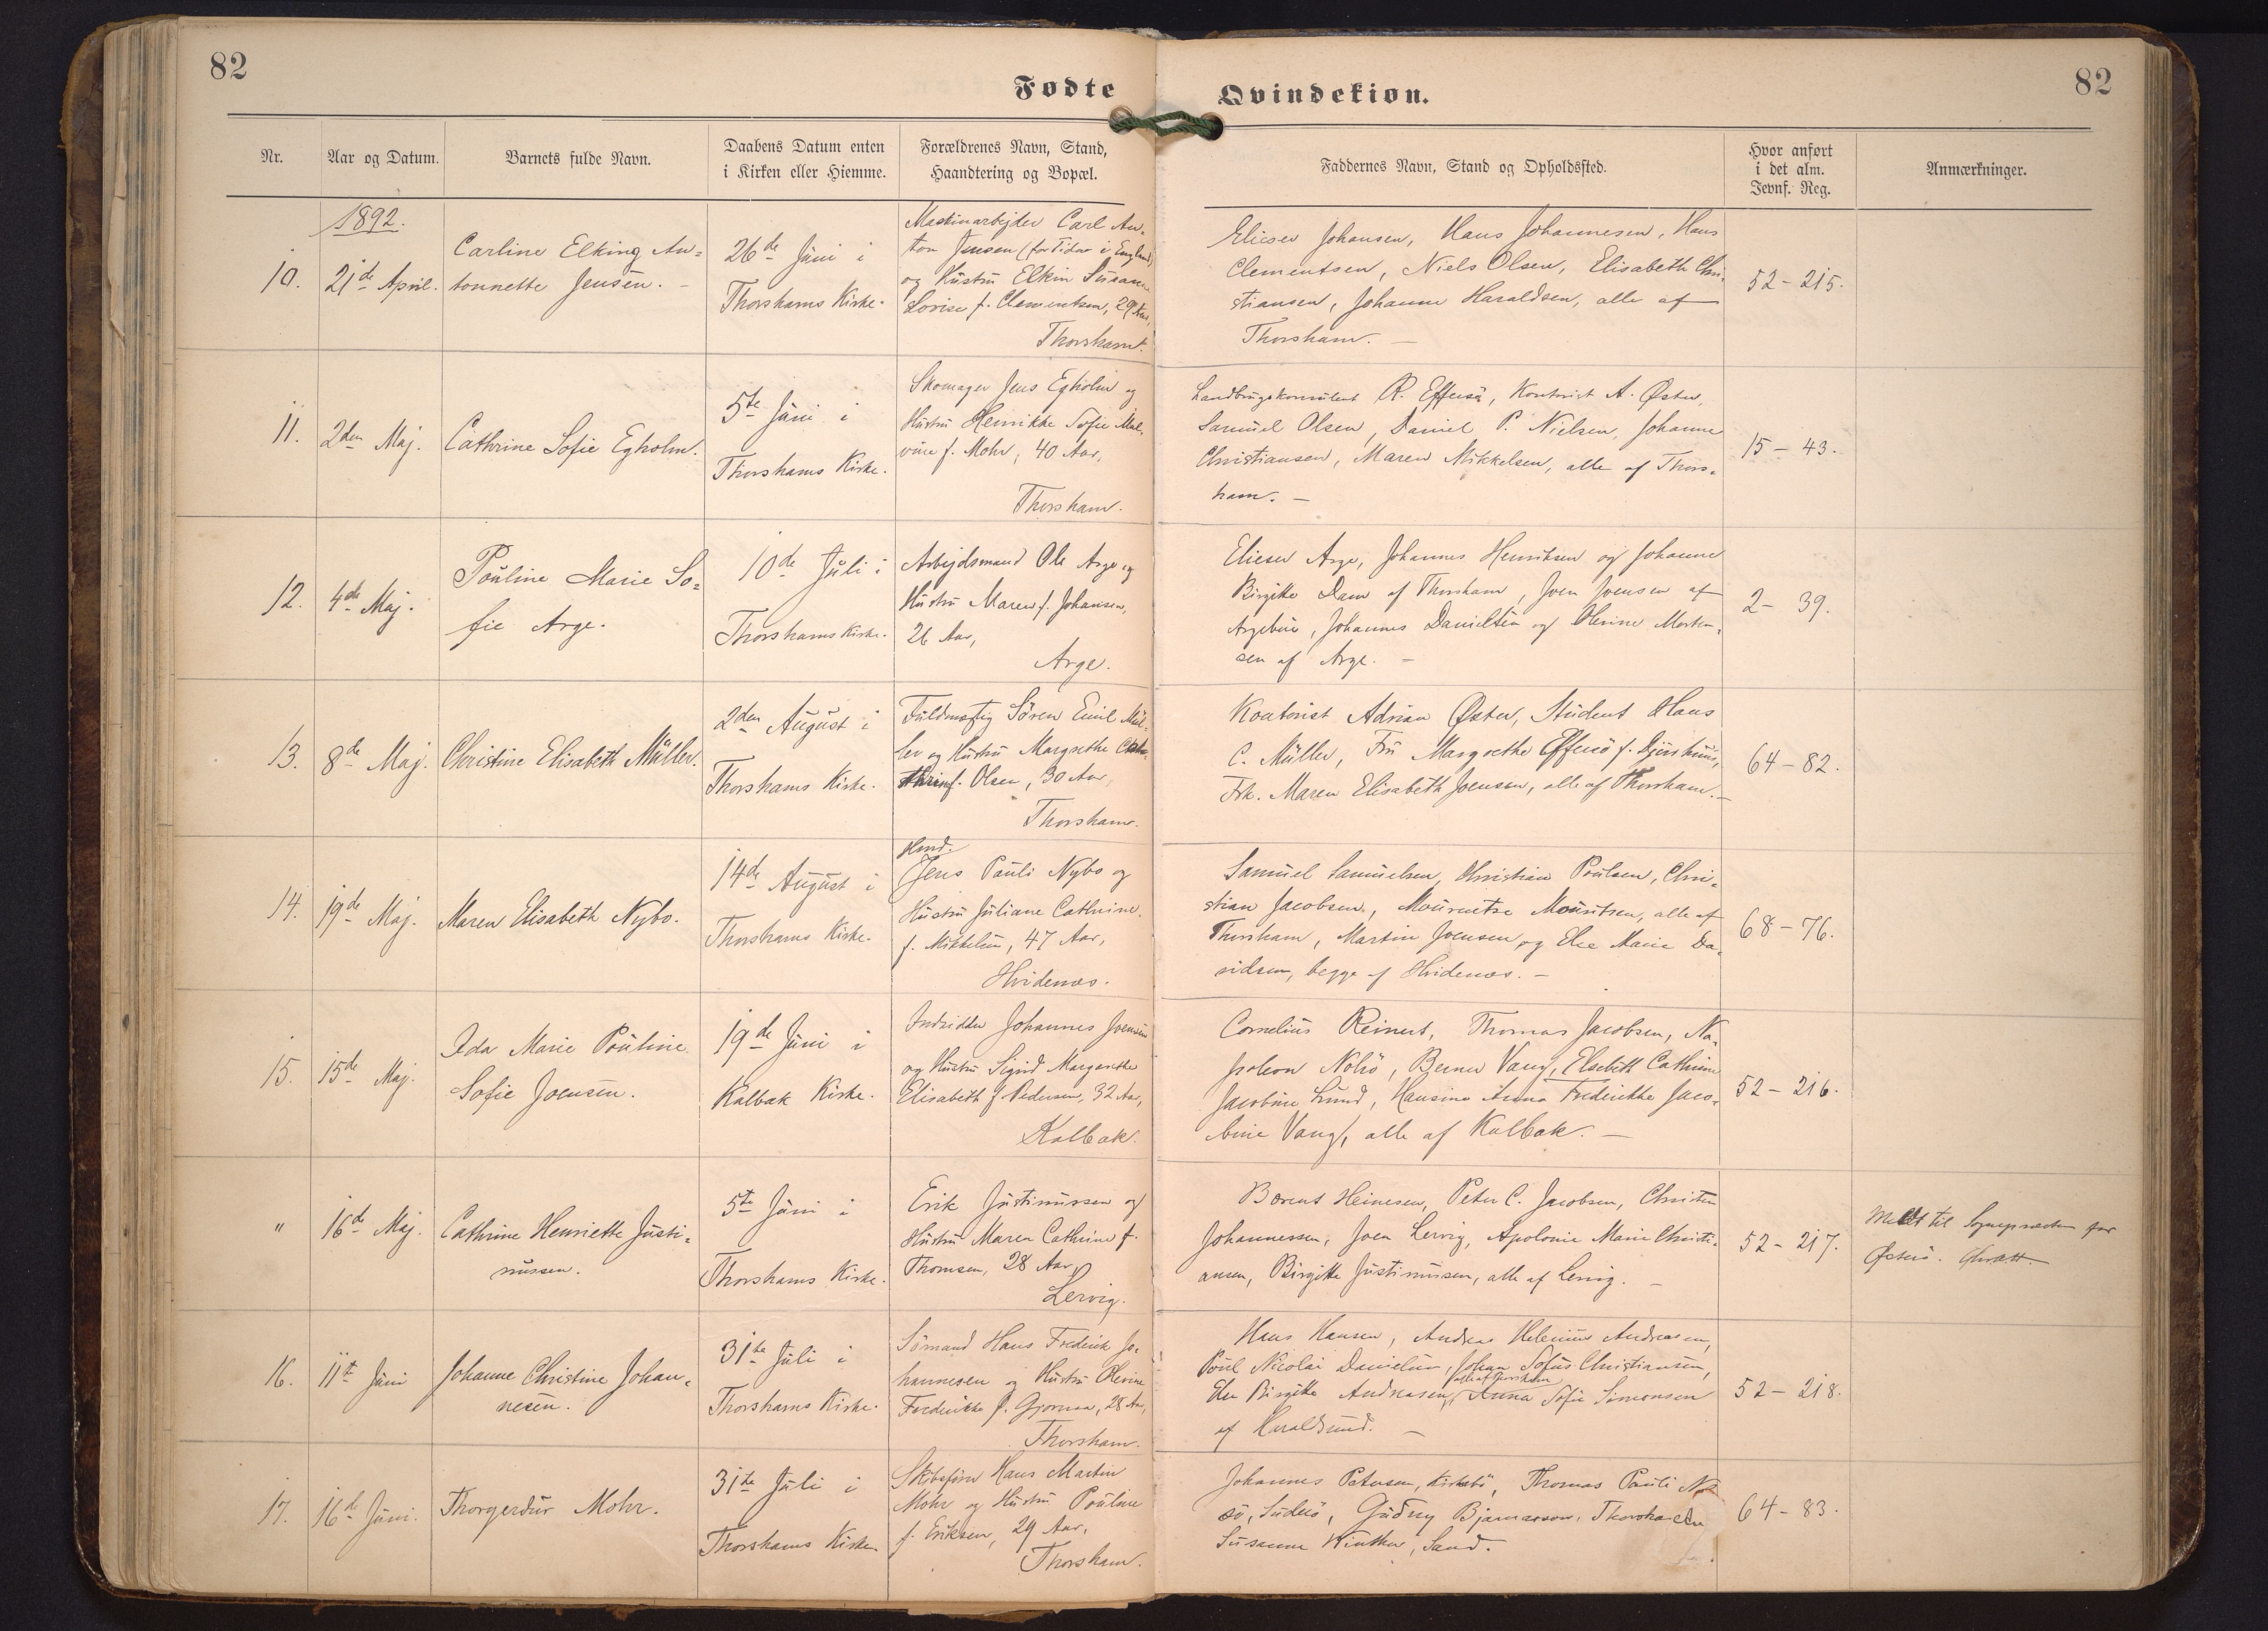 82
82
Fødte
Qvindekiøn.
Nr.
Aar og Datum.
Barnets fulde Navn.
Daabens Datum enten
i Kirken eller Hiemme.
Forældrenes Navn, Stand,
Haandtering og Bopæl.
Faddernes Navn, Stand og Opholdssted.
Hvor anført
i det alm.
Jevnf. Reg.
Anmærkninger.
1892.
10.
21de April.
Carline Elking An-
tonnette Jensen. -
26de Juni i
Thorshavns Kirke.
Maskinarbejder Carl An-
ton Jensen (for Tiden i England)
og Hustru Elkin Susanne
Lovise f. Clementsen, 29 Aar,
Thorshavn.
Elieser Johansen, Hans Johannesen, Hans
Clementsen, Niels Olsen, Elisabeth Chri-
stiansen, Johanne Haraldsen, alle af
Thorshavn. -
52 - 215.
11.
2den Maj.
Cathrine Sofie Egholm.
5te Juni i
Thorshavns Kirke.
Skomager Jens Egholm og
Hustru Henrikke Sofie Mal-
vine f. Mohr, 40 Aar,
Thorshavn.
Landbrugskonsulent R. Effersö, Kontorist A. Øster,
Samuel Olsen, Daniel P. Nielsen, Johanne
Christiansen, Maren Mikkelsen, alle af Thors-
havn. -
15 - 43.
12.
4de Maj.
Pouline Marie So-
fie Arge.
10de Juli i
Thorshavns Kirke.
Arbejdsmand Ole Arge og
Hustru Maren f. Johansen,
26 Aar,
Arge.
Elieser Arge, Johannes Henriksen og Johanne
Birgitte Dam af Thorshavn, Joen Joensen af
Argebui, Johannes Danielsen og Olevine Morten-
sen af Arge. -
2 - 39.
13.
8de Maj.
Christine Elisabeth Müller.
2den August i
Thorshavns Kirke.
Fuldmægtig Sören Emil Mül-
ler og Hustru Margrethe Cathe-
f. Olsen, 30 Aar,
Thorshavn.
Kontorist Adrian Øster, Student Hans
C. Müller, Fru Margrethe Effersö f. Djurhuus,
Frk. Maren Elisabeth Joensen, alle af Thorshavn. -
64 - 82.
14.
19de Maj.
Maren Elisabeth Nybo.
14de August i
Thorshavns Kirke.
Hmd.
Jens Pauli Nybo og
Hustru Juliane Cathrine
f. Mikkelsen, 47 Aar,
Hvidenæs.
Samuel Samuelsen, Christian Poulsen, Chri-
stian Jacobsen, Mouritsen, alle af
Thorshavn, Martin Joensen og Else Marie Da-
vidsen, begge af Hvidenæs. -
68 - 76.
15.
15de Maj.
Ida Marie Pouline
Sofie Joensen.
19de Juni i
Kalbak Kirke.
Indsidder Johannes Joensen
og Hustru Sigrid Margarethe
Elisabeth f. Pedersen, 32 Aar,
Kalbak.
Cornelius Reinert, Thomas Jacobsen, Na-
poleon Nolsö, Berner Vang, Elsebeth Cathrine
Jacobine Lund, Hansine Anna Frederikke Jaco-
bine Vang, alle af Kalbak. -
52 - 216.
"
16de Maj.
Cathrine Henriette Justi-
nussen.
5te Juni i
Thorshavns Kirke.
Erik Justinussen og
Hustru Maren Cathrine f.
Thomsen, 28 Aar,
Lervig.
Berent Heinesen, Peter C. Jacobsen, Christen
Johannessen, Joen Lervig, Apolonie Marie Christi-
ansen, Birgitte Justinussen, alle af Lervig. -
52 - 217.
Meldt til Sognepræsten for
Østerö.
16.
11te Juni
Johanne Christine Johan-
nesen.
31te Juli i
Thorshavns Kirke.
Sömand Hans Frederik Jo-
hannesen og Hustru Olevine
Frederikke f. Gjorma, 28 Aar,
Thorshavn.
Hans Hansen, Andreas Helenius Andreasen,
Poul Nicolai Danielsen, Johan Sofus Christiansen,
alle af Thorshavn
Else Birgitte Andreasen, Anna Sofie Simonsen
af Haraldsund. -
52 - 218.
17.
16de Juni.
Thorgerdur Mohr.
31te Juli i
Thorshavns Kirke.
Skibsförer Hans Martin
Mohr og Hustru Pouline
f. Eriksen, 29 Aar,
Thorshavn.
Johannes Patursson, Kirkebö, Thomas Pauli
Suderö, Gudny Bjarnarson, Thorshavn
Susanne Winther, Sand.
64 - 83.